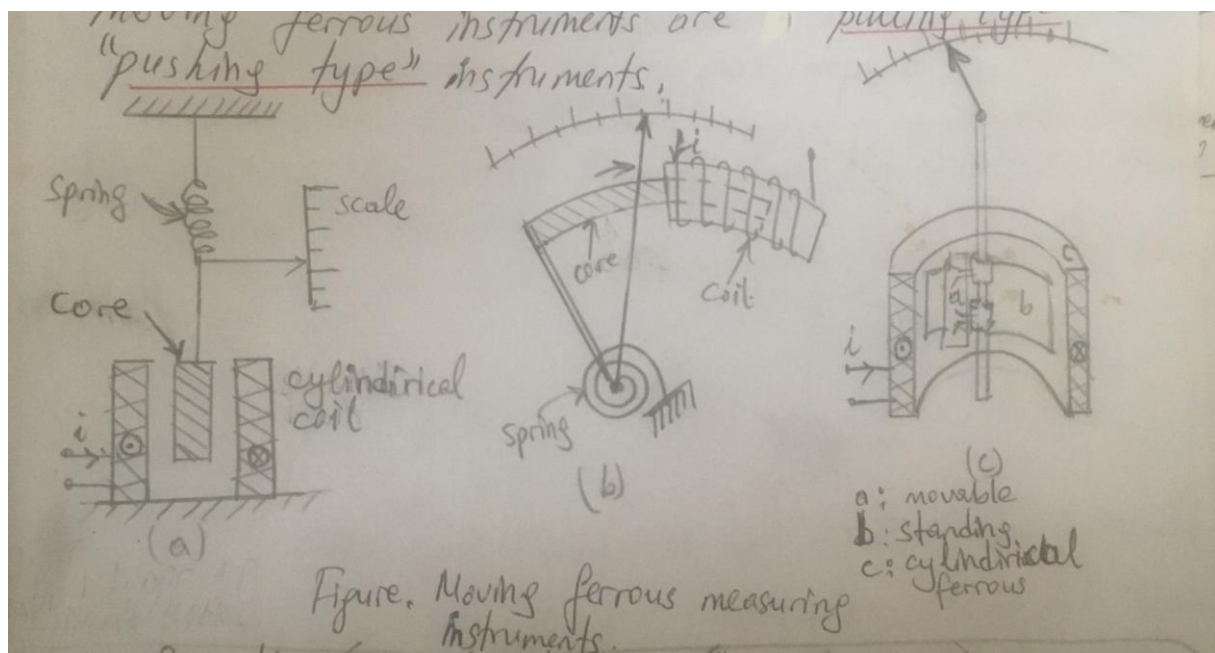 moving ferrous instruments are pulling type
"pushing type" instruments.
spring
scale
core
cylindirical
coil
i
(a)
i
core
coil
spring
(b)
c
a
b
i
(c)
a: movable
b: standing
c: cylindirical
ferrous
Figure. Moving ferrous measuring
instruments.